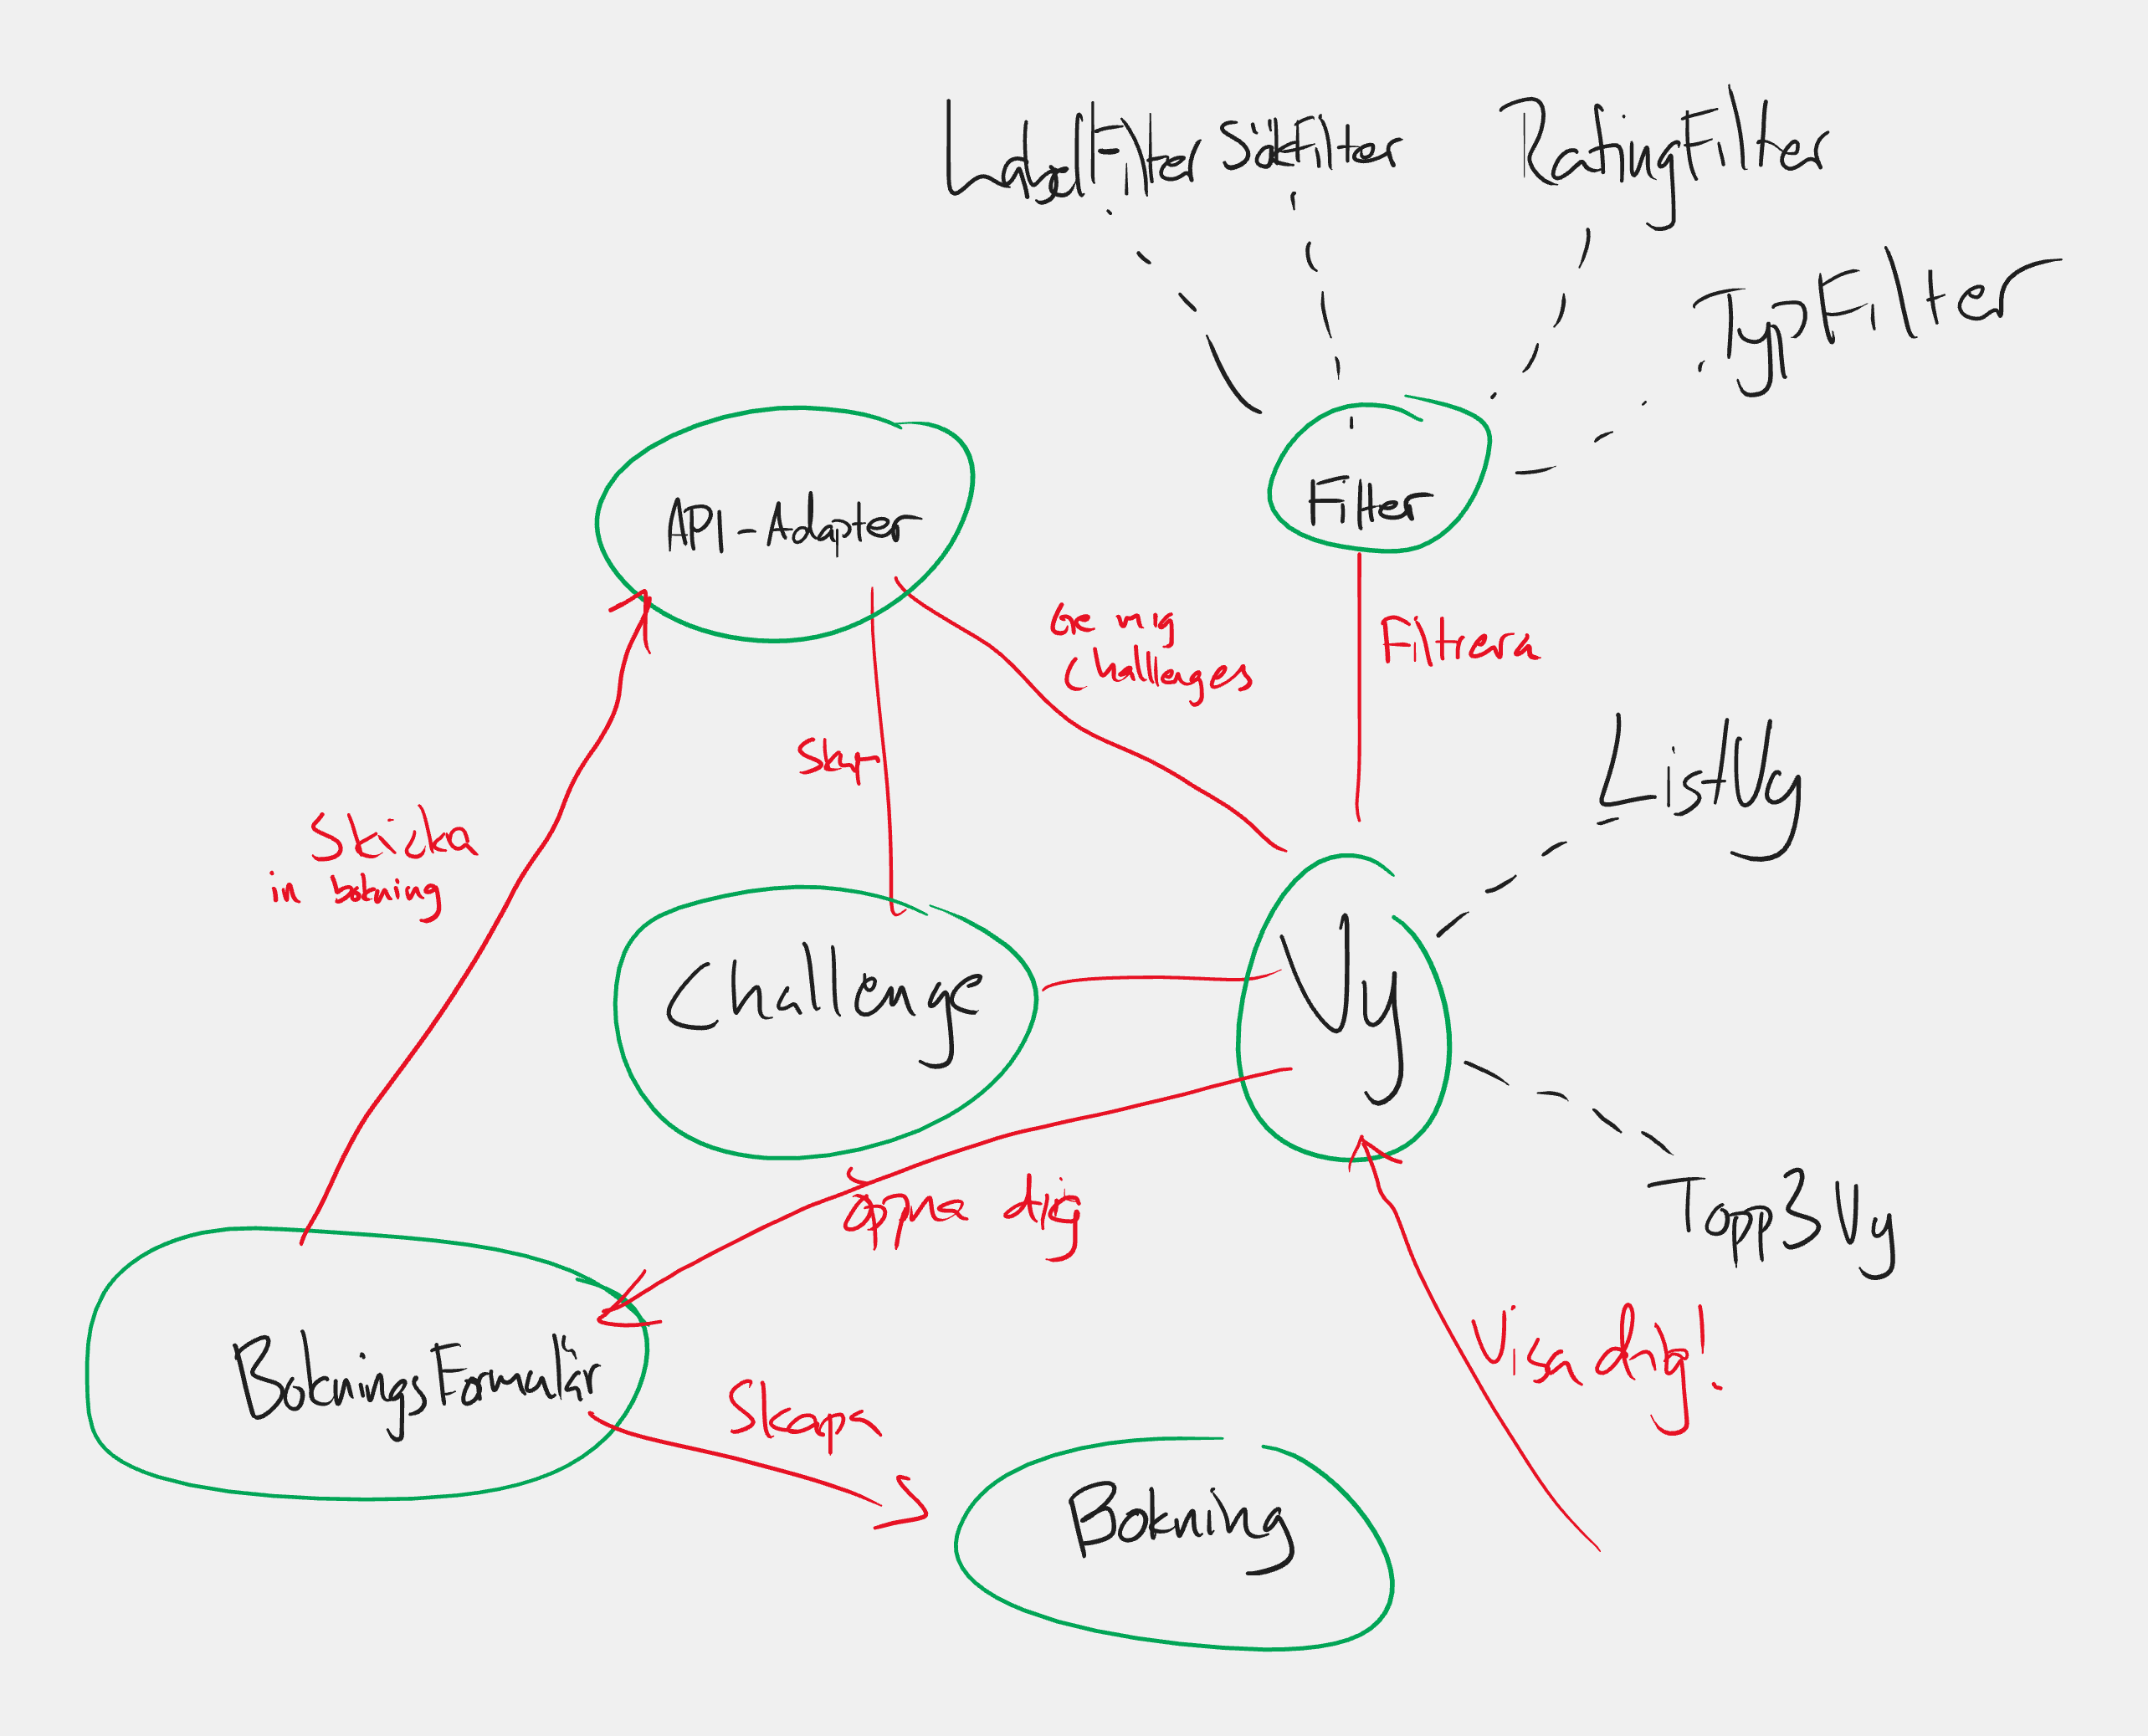 LabelFilter SökFilter RatingFilter
TypFilter
API-Adapter
Filter
Ge mig
Challenges
Filtrera
Skapa
ListVy
Skicka
in bokning
Challenge
Vy
Öppna dig
Topp3Vy
Visa dig!
BokningsFormulär
Skapa
Bokning